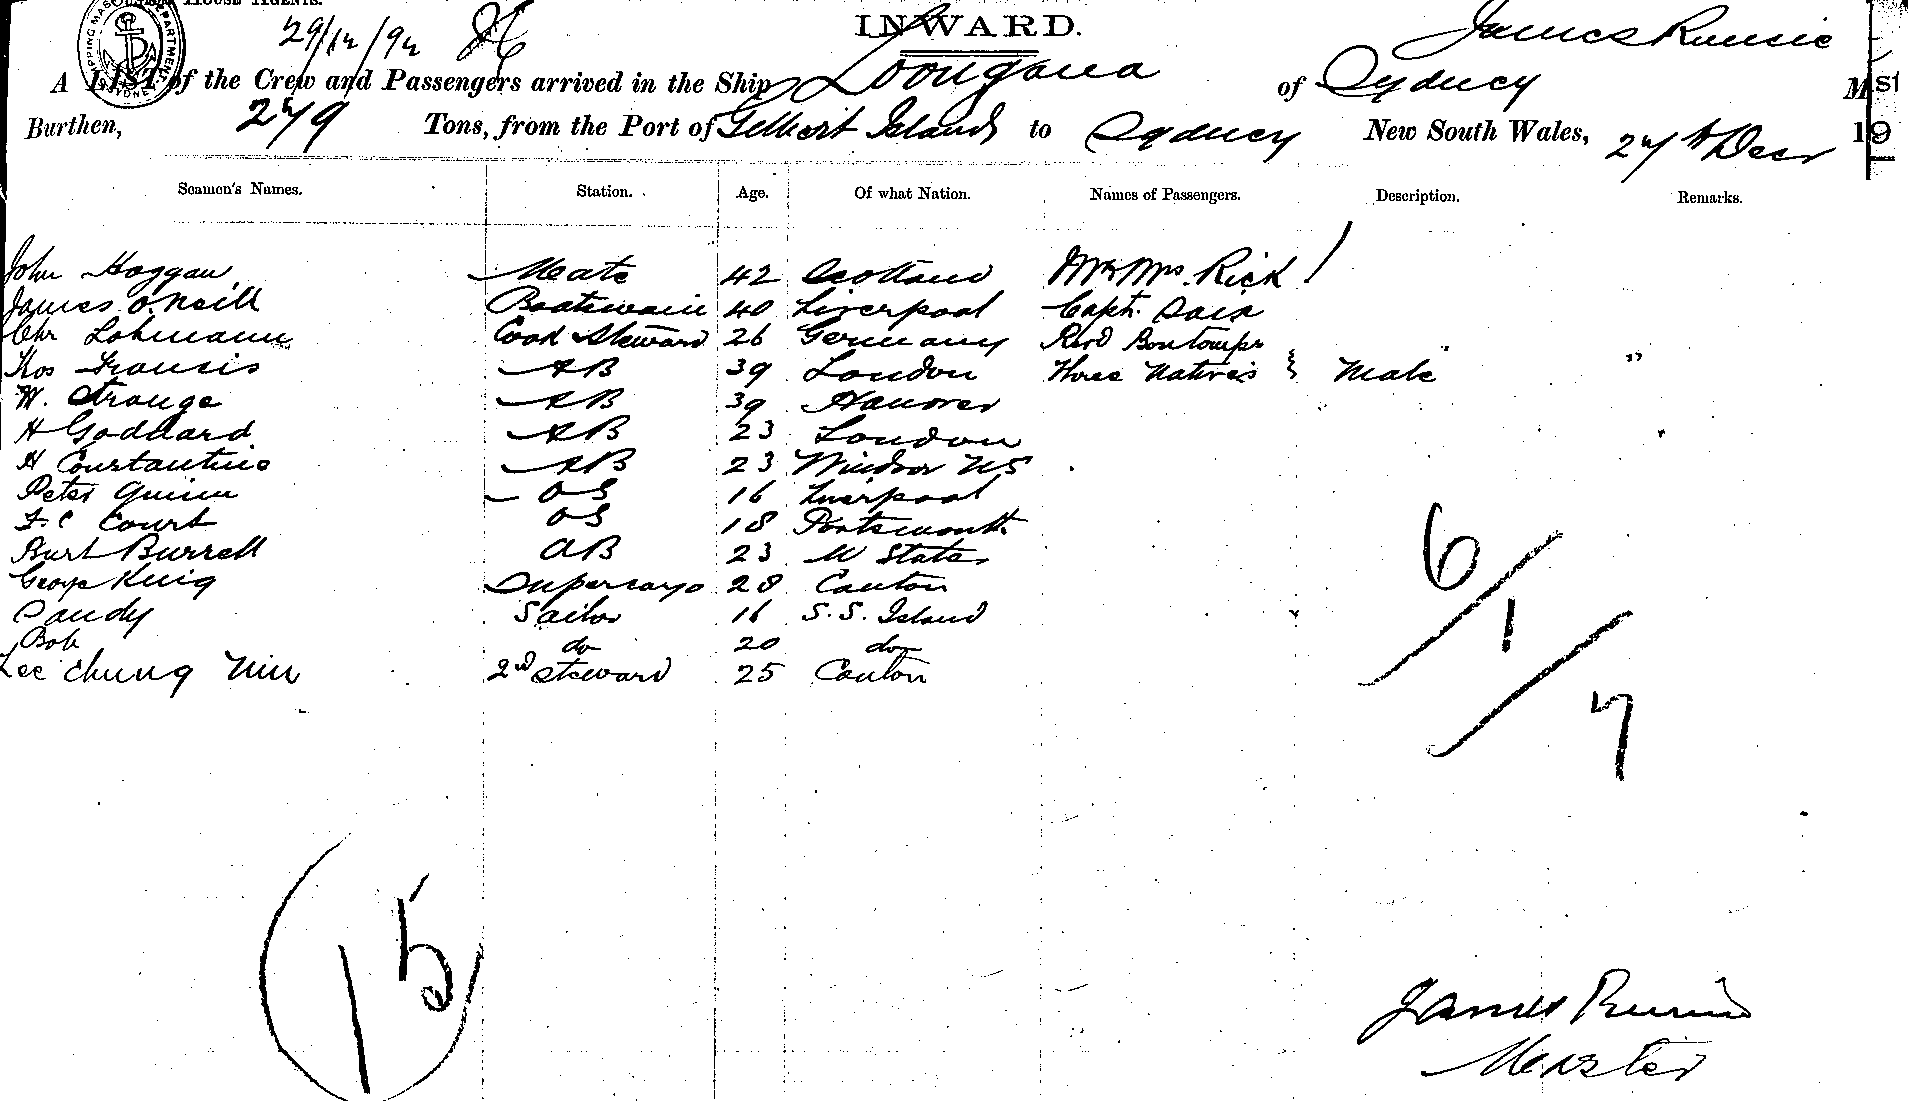 HOUSE AGENTS.
29/12/92
INWARD.
James Runcie
A LIST of the Crew and Passengers arrived in the Ship Loongana of Sydney
Burthen, 279 Tons, from the Port of Gilbert Islands to Sydney New South Wales, 27th Decr 19
Seamen's Names. Station. Age. Of what Nation. Names of Passengers. Description. Remarks.
John Hoggan Mate 42 Scotland Mr & Mrs. Rick
James O.Neill Boatswain 40 Liverpool Capt.
Chr Lohmann Cook Steward 26 Germany Revd Bontemps
Thos Francis AB 39 London Three Natives Male "
W. Strange AB 39 Hanover
H Goddard AB 23 London
H Constantine AB 23 Windsor NS
Peter Quinn OS 16 Liverpool
F.C Court OS 18 Portsmouth
Burt Burrell AB 23 U States
George King Supercargo 28 Canton
Sandy Sailor 16 S.S. Island
Bob do 20 do
Lee Chung 2nd Steward 25 Canton
6/1/7
15
James Runcie
Master